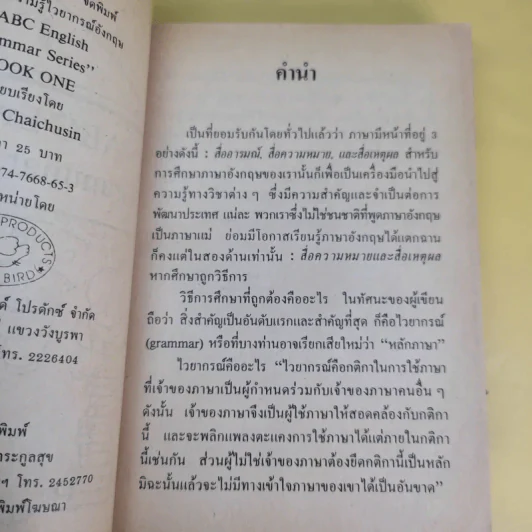 จัดพิมพ์
ความรู้ไวยากรณ์อังกฤษ
ABC English
mmar Series"
OOK ONE
ยบเรียงโดย
Chaichusin
า 25 บาท
74-7668-65-3
หน่ายโดย
PRODUCTS
BIRD
ด์ โปรดักซ์ จำกัด
แขวงวังบูรพา
โทร. 2226404
พิมพ์
ตระกูลสุข
ฯ โทร. 2452770
พิมพ์โฆษณา
คำนำ
เป็นที่ยอมรับกันโดยทั่วไปแล้วว่า ภาษามีหน้าที่อยู่ 3
อย่างดังนี้ : สื่ออารมณ์, สื่อความหมาย, และสื่อเหตุผล สำหรับ
การศึกษาภาษาอังกฤษของเรานั้นก็เพื่อเป็นเครื่องมือนำไปสู่
ความรู้ทางวิชาต่าง ๆ ซึ่งมีความสำคัญและจำเป็นต่อการ
พัฒนาประเทศ แน่ละ พวกเราซึ่งไม่ใช่ชนชาติที่พูดภาษาอังกฤษ
เป็นภาษาแม่ ย่อมมีโอกาสเรียนรู้ภาษาอังกฤษได้แตกฉาน
ก็คงแต่ในสองด้านเท่านั้น : สื่อความหมายและสื่อเหตุผล
หากศึกษาถูกวิธีการ
วิธีการศึกษาที่ถูกต้องคืออะไร ในทัศนะของผู้เขียน
ถือว่า สิ่งสำคัญเป็นอันดับแรกและสำคัญที่สุด ก็คือไวยากรณ์
(grammar) หรือที่บางท่านอาจเรียกเสียใหม่ว่า "หลักภาษา"
ไวยากรณ์คืออะไร "ไวยากรณ์คือกติกาในการใช้ภาษา
ที่เจ้าของภาษาเป็นผู้กำหนดร่วมกับเจ้าของภาษาคนอื่น ๆ
ดังนั้น เจ้าของภาษาจึงเป็นผู้ใช้ภาษาให้สอดคล้องกับกติกา
นี้ และจะพลิกแพลงตะแคงการใช้ภาษาได้แต่ภายในกติกา
นี้เช่นกัน ส่วนผู้ไม่ใช่เจ้าของภาษาต้องยึดกติกานี้เป็นหลัก
มิฉะนั้นแล้วจะไม่มีทางเข้าใจภาษาของเขาได้เป็นอันขาด"